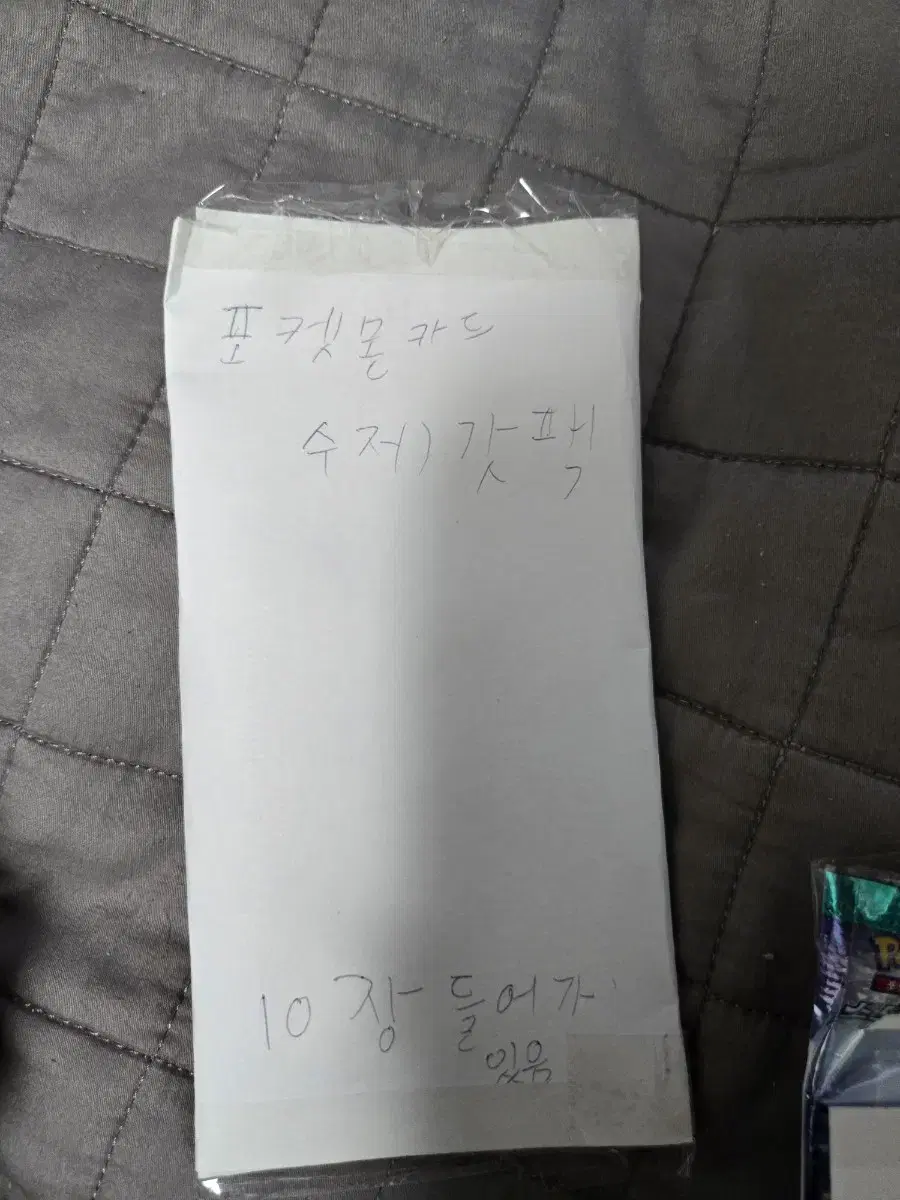 포켓몬카드
수제) 갓팩
10장 들어가
있음